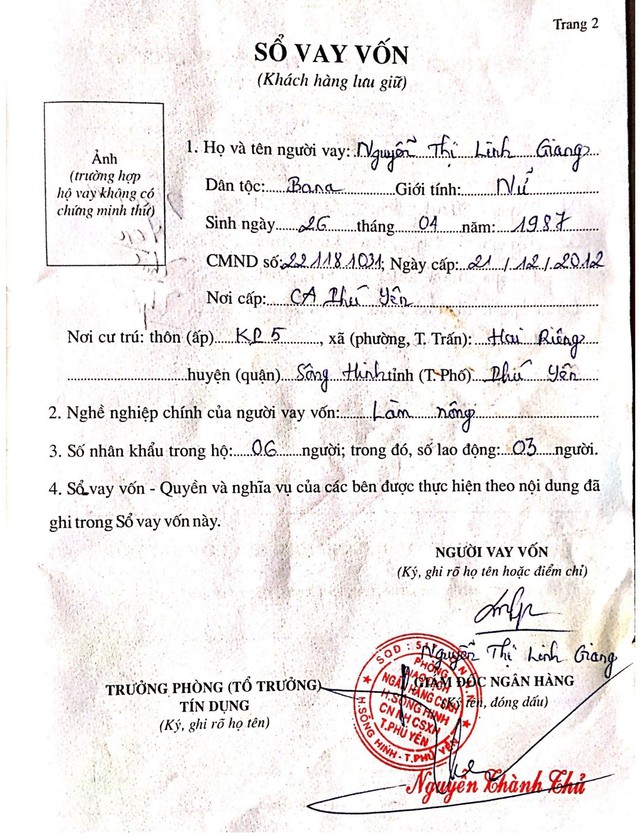 Trang 2
SỔ VAY VỐN
(Khách hàng lưu giữ)
Ảnh
(trường hợp
hộ vay không có
chứng minh thư)
1. Họ và tên người vay: Nguyễn Thị Linh Giang
Dân tộc: Bana Giới tính: Nữ
Sinh ngày 26 tháng 04 năm: 1987
CMND số: 221181031; Ngày cấp: 21/12/2012
Nơi cấp: CA Phú Yên
Nơi cư trú: thôn (ấp) KP5, xã (phường, T. Trấn): Hai Riêng
huyện (quận) Sông Hinh tỉnh (T. Phố) Phú Yên
2. Nghề nghiệp chính của người vay vốn: Làm nông
3. Số nhân khẩu trong hộ: 06 người; trong đó, số lao động: 03 người.
4. Sổ vay vốn - Quyền và nghĩa vụ của các bên được thực hiện theo nội dung đã
ghi trong Sổ vay vốn này.
NGƯỜI VAY VỐN
(Ký, ghi rõ họ tên hoặc điểm chỉ)
Nguyễn Thị Linh Giang
TRƯỞNG PHÒNG (TỔ TRƯỞNG)
TÍN DỤNG
(Ký, ghi rõ họ tên)
GIÁM ĐỐC NGÂN HÀNG
(Ký tên, đóng dấu)
PHÒNG
GIAO DỊCH
NGÂN HÀNG CSXH
H.SÔNG HINH
CN NH CSXH
T.PHÚ YÊN
H.SÔNG HINH - T.PHÚ YÊN
Nguyễn Thành Thủ